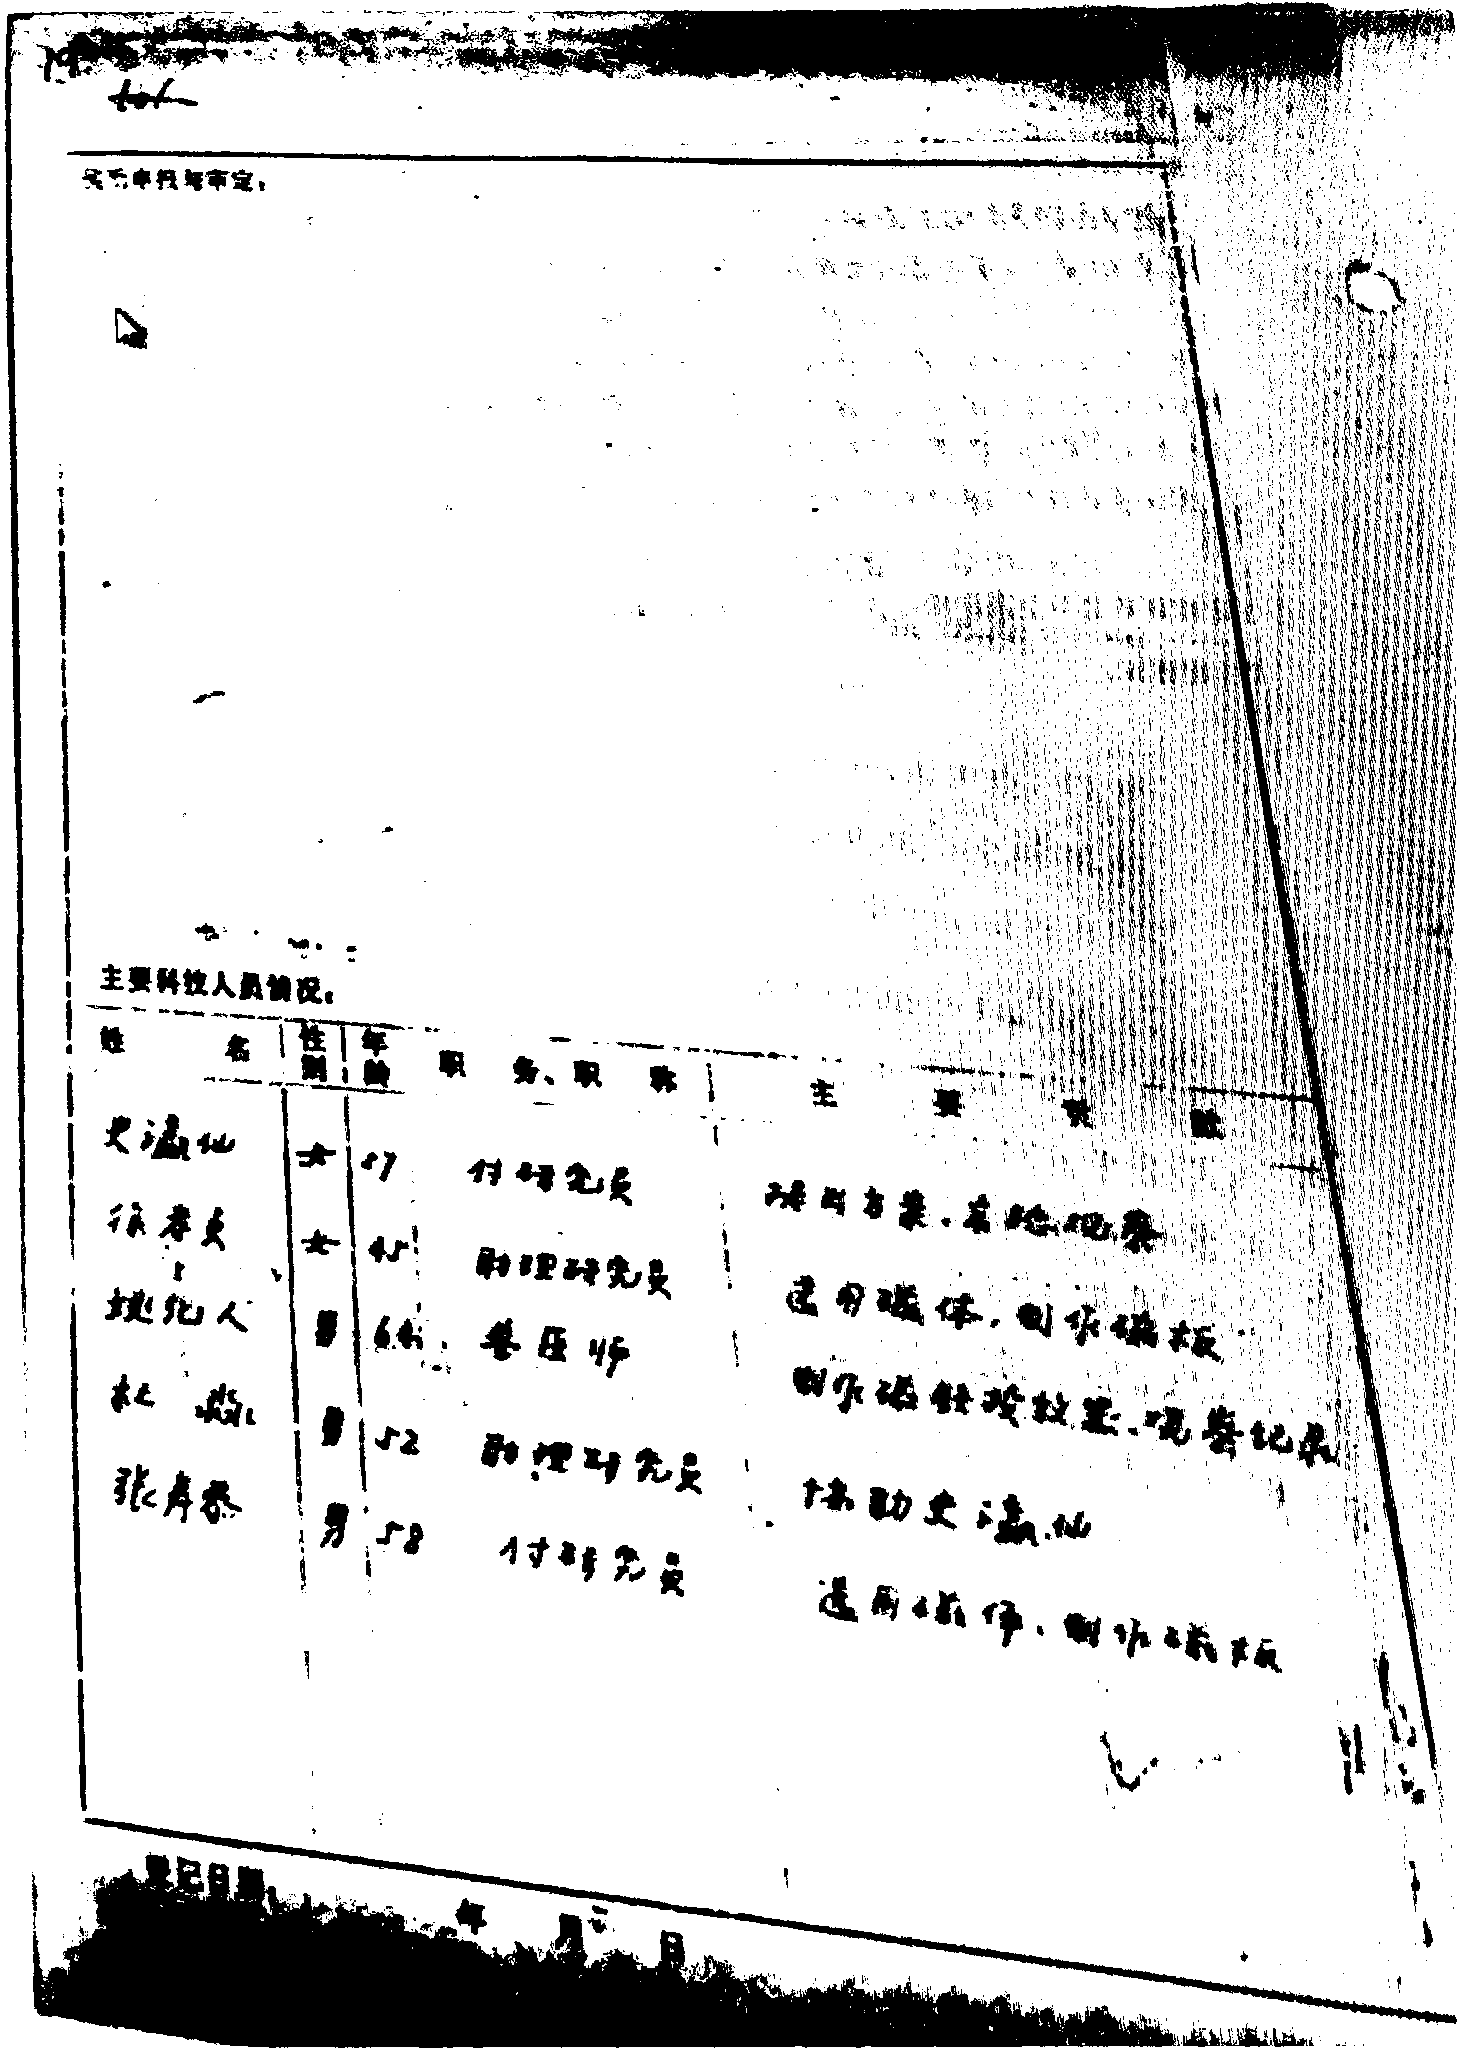 主要科技人员情况：
姓 名 性别 年龄 职 务、职 称 主 要 贡 献
史瀛仙 女 57 付研究员 研制方案、实验观察
徐孝贞 女 45 助理研究员 选用磁体、制作磁板
姚纪人 男 64 兽医师 制作磁针及放置、观察记录
杜 男 52 助理研究员 协助史瀛仙
张寿 男 58 付研究员 选用磁体、制作磁板
登记日期： 年 月 日